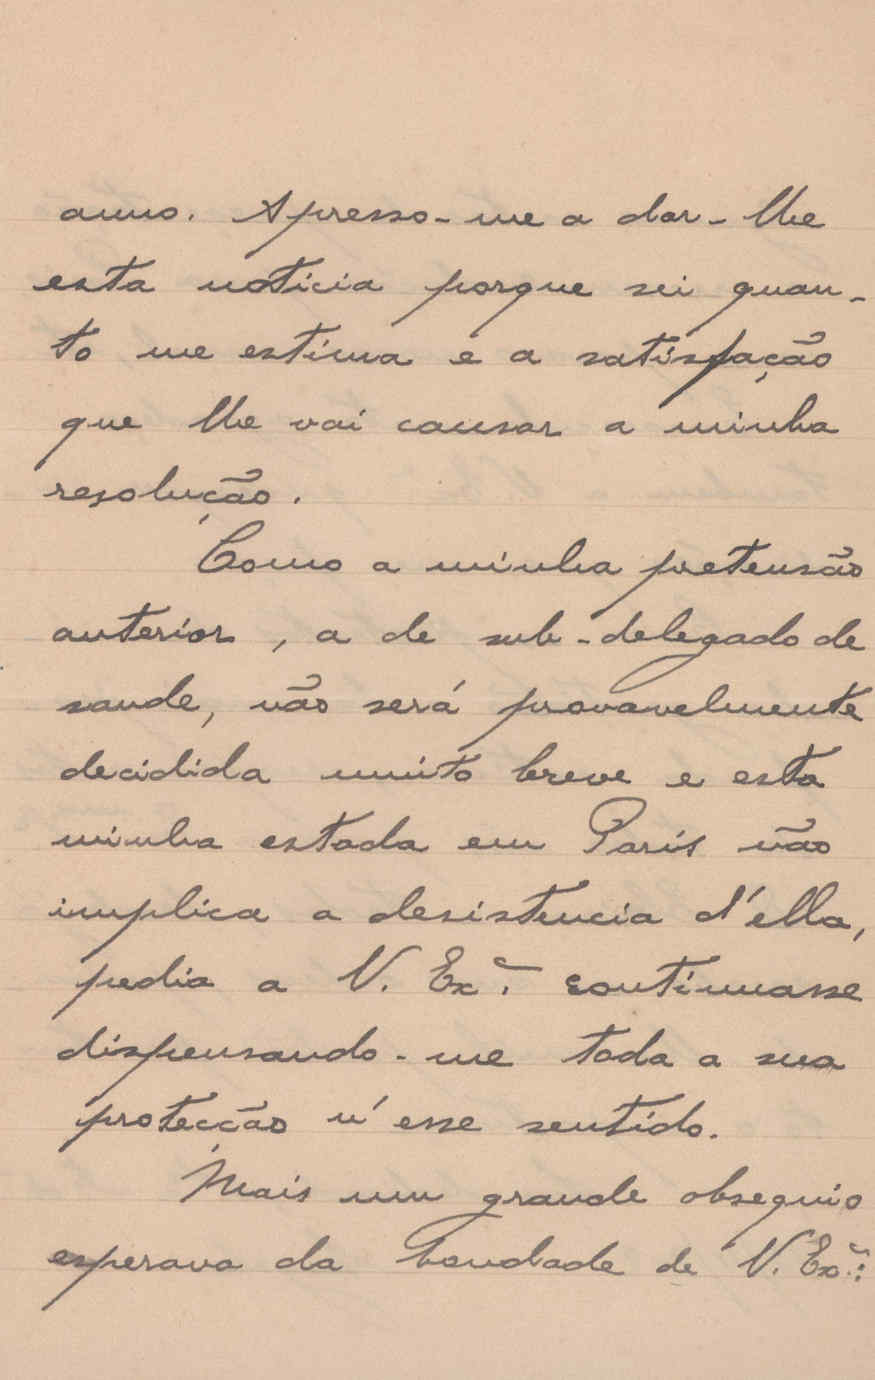 anno. Apresso-me a dar-lhe
esta noticia porque sei quan-
to me estima e a satisfação
que lhe vai causar a minha
resolução.
Como a minha pretensão
anterior, a de sub-delegado de
saude, não será provavelmente
decidida muito breve e esta
minha estada em Paris não
implica a desistencia d'ella,
pedia a V. Exª. continuasse
dispensando-me toda a sua
protecção n'esse sentido.
Mais um grande obsequio
esperava da bondade de V. Exª: